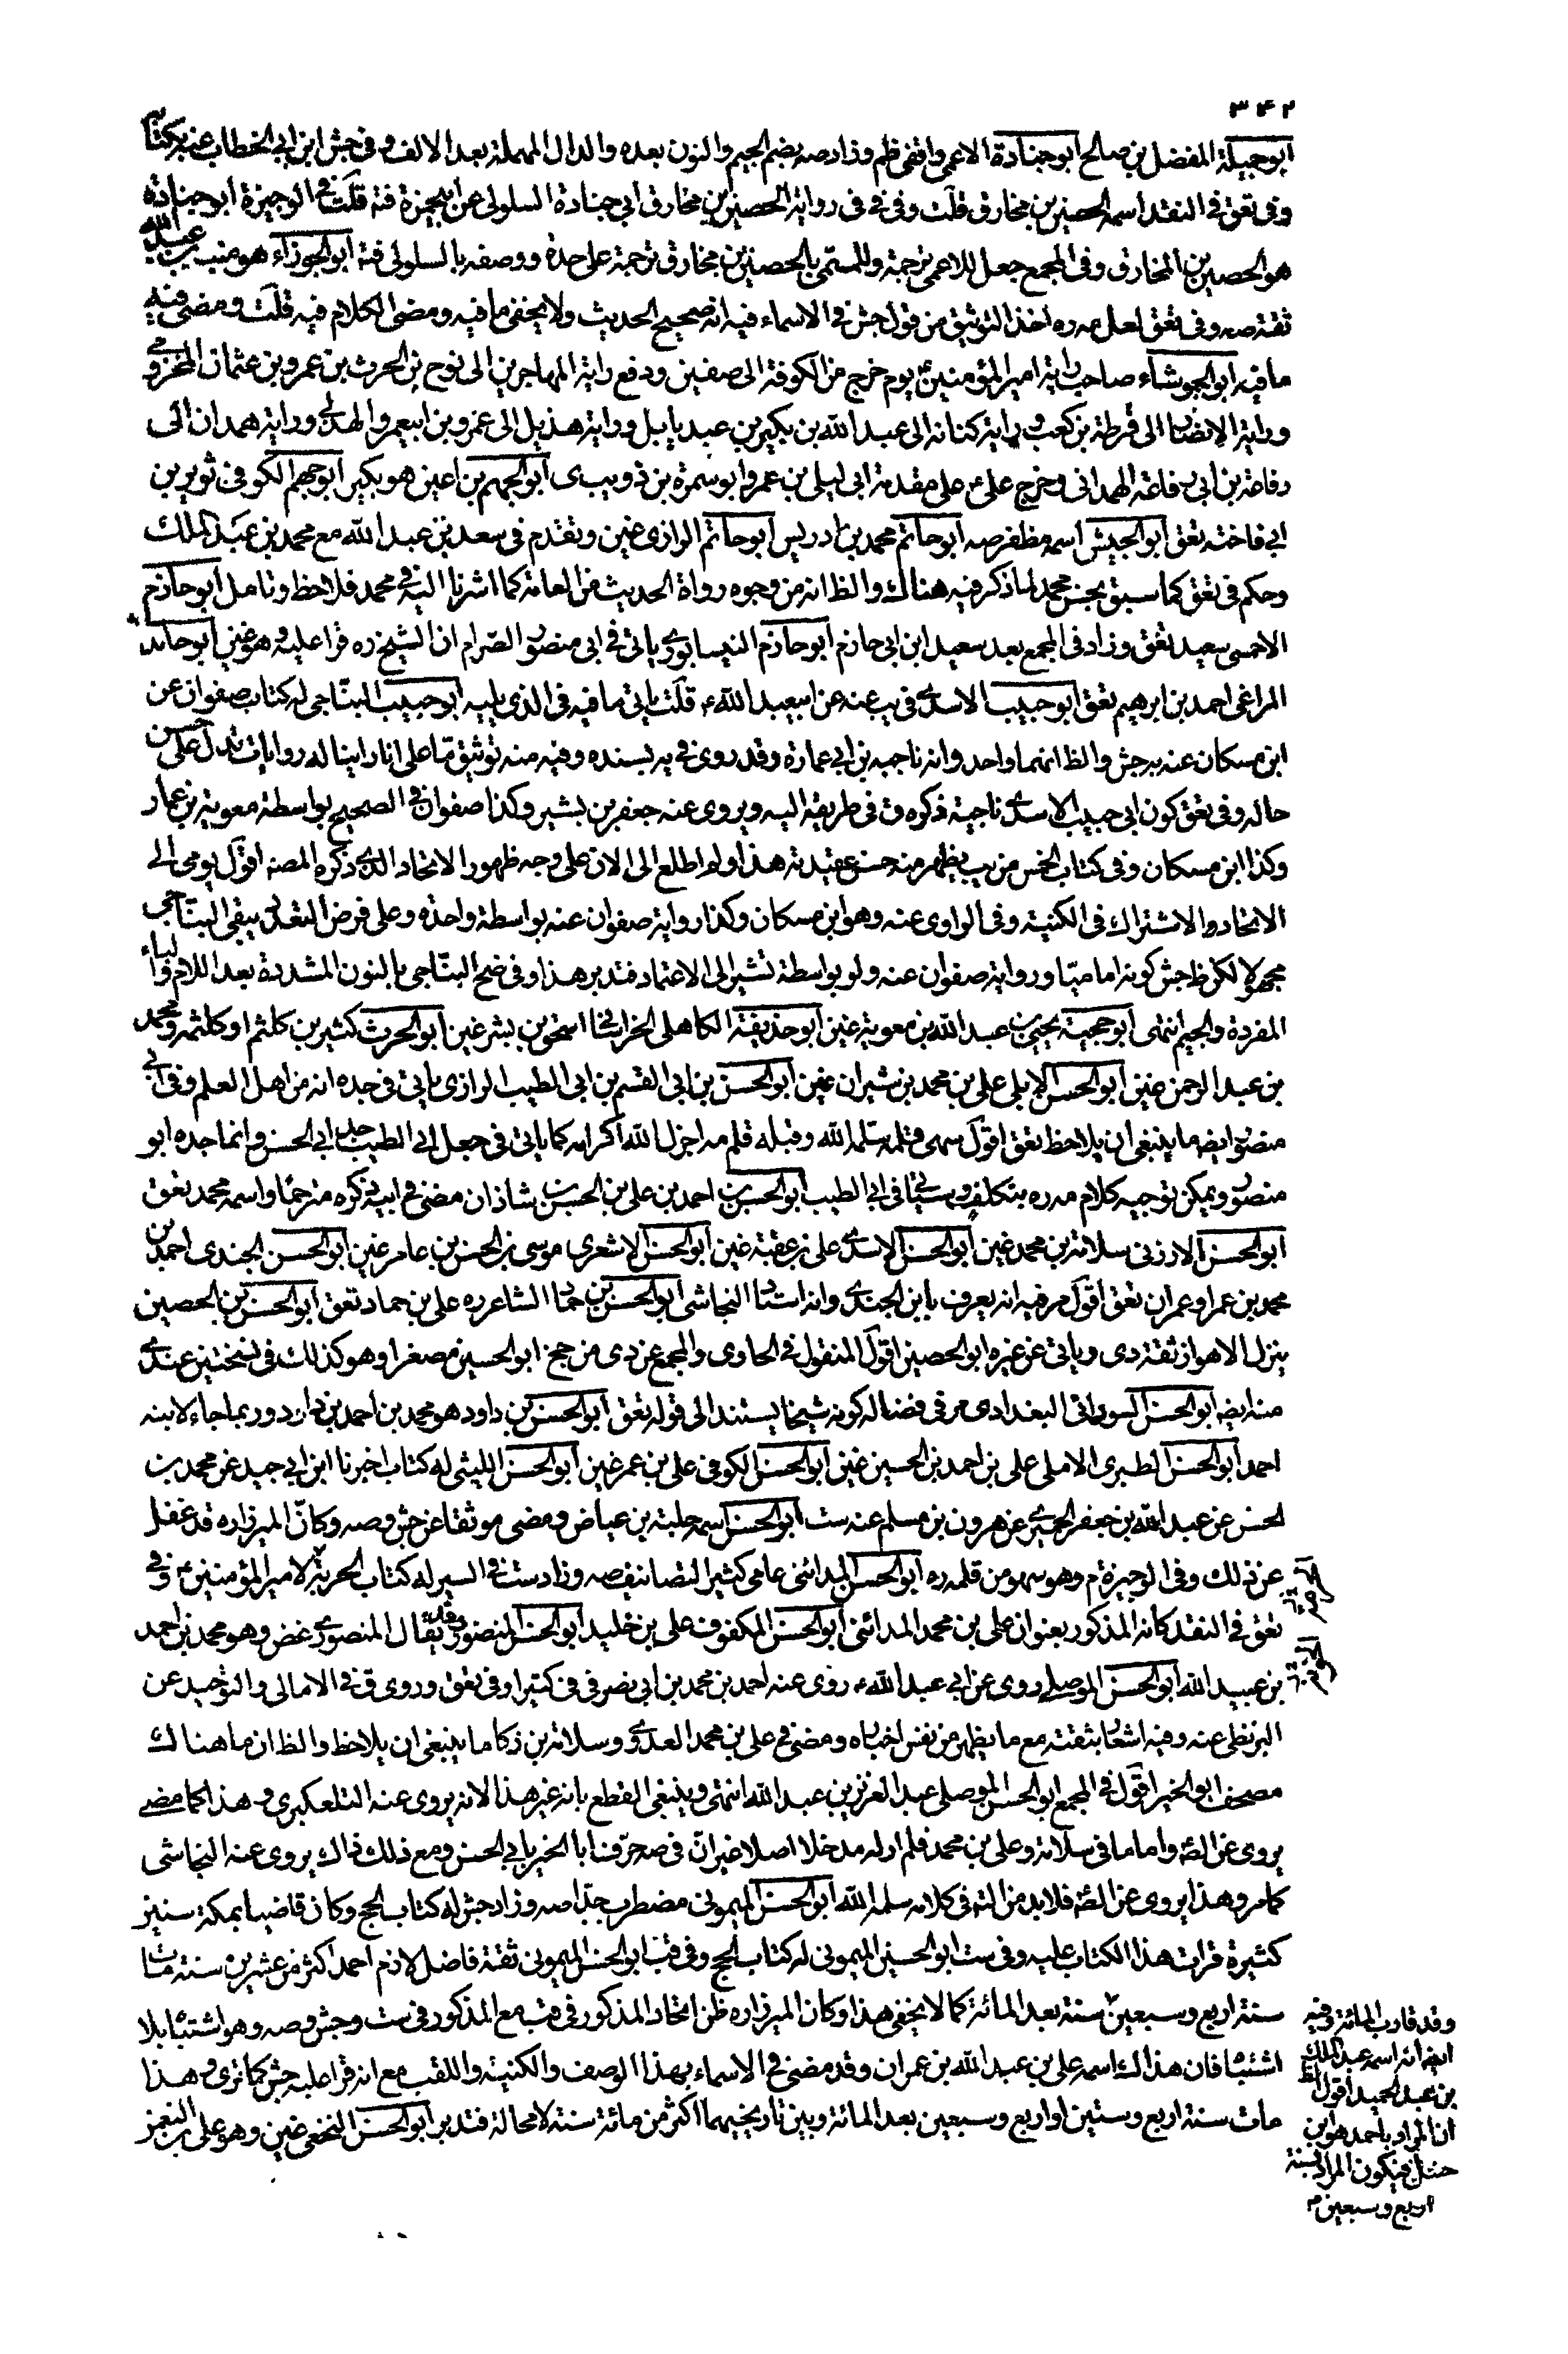 ٣٤٢
ابو جميلة المفضل بن صالح ابو جنادة الاعمى واقفى ظم وزاد صه بضم الجيم والنون بعده والدال المهملة بعد الالف وفى جش ابن ابى الخطاب عنه بكتابه
وفى تعق فى النقد اسمه الحصين بن مخارق قلت وفى فى رواية الحصين بن مخارق ابى جنادة السلولى عن ابى حمزة فته قلت فى الوجيزة ابو جنادة
هو الحصين بن المخارق وفى المجمع جعل للاعمى ترجمة وللمسمّى بالحصين بن مخارق ترجمة على حدة ووصفه بالسلولى فته ابو الجوزاء هو منبه بن عبد الله
ثقة صه وفى تعق لعل مه ره اخذ التوثيق من قول جش فى الاسماء فيه انه صحيح الحديث ولا يخفى ما فيه ومضى الكلام فيه قلت ومضى فيه
ما فيه ابو الجوشاء صاحب راية امير المؤمنين ع يوم خرج من الكوفة الى صفين ودفع راية المهاجرين الى نوح بن الحرث بن عمرو بن عثمان المخزومى
وراية الانصار الى قرظة بن كعب وراية كنانة الى عبد الله بن بكير بن عبد ياليل وراية هذيل الى عمرو بن ابى عمرو الهذلى وراية همدان الى
رفاعة بن ابى رفاعة الهمدانى وخرج على ع على مقدمة ابى ليلى بن عمر وابو سمرة بن ذويب ى ابو الجهم بن اعين هو بكير ابو جهم الكوفى ثوير بن
ابى فاختة تعق ابو الجيش اسمه مظفر صه ابو حاتم محمد بن ادريس ابو حاتم الرازى غين وتقدم فى سعد بن عبد الله مع محمد بن عبد الملك
وحكم فى تعق كما سبق بحسن محمد لما ذكر فيه هناك والظ انه من وجوه رواة الحديث من العامة كما اشرنا اليه فى محمد فلاحظ وتامل ابو حازم
الاحمسى سعيد تعق وزاد فى المجمع بعد سعيد ابن ابى حازم ابو حازم النيسابورى ياتى فى ابى منصور الصرام ان الشيخ ره قرا عليه وهو غين ابو حامد
المراغى احمد بن ابرهيم تعق ابو حبيب الاسدى فى يب عنه عن ابيعبد الله ع قلت ياتى ما فيه فى الذى يليه ابو حبيب النباجى له كتاب صفوان عن
ابن مسكان عنه به جش والظ انهما واحد وانه ناجية بن ابى عمارة وقد روى فى يه بسنده وفيه منه توثيق مّا على انا راينا له روايات تدل على حسن
حاله وفى تعق كون ابى حبيب الاسدى ناجية ذكره ق فى طريقه اليه ويروى عنه جعفر بن بشير وكذا صفوان فى الصحيح بواسطة معوية بن عمار
وكذا ابن مسكان وفى كتاب الخمس من يب يظهر منه حسن عقيدته هذا ولم اطلع الى الان على وجه ظهور الاتحاد الذى ذكره المصنه اقول يومى الى
الاتحاد الاشتراك فى الكنية وفى الراوى عنه وهو ابن مسكان وكذا رواية صفوان عنه بواسطة واحدة وعلى فرض التعدد يبقى النباجى
مجهولا لكن ظ جش كونه اماميّا ورواية صفوان عنه ولو بواسطة تشير الى الاعتماد فتدبر هذا وفى ضح النباجى بالنون المشددة بعد اللام والباء
المفردة والجيم انتهى ابو حجية يحيى بن عبد الله بن معوية غين ابو حذيفة الكاهلى الخراسانى اسحق بن بشر غين ابو الحرث كثير بن كلثم او كلثمه ومحمد
بن عبد الرحمن غين ابو الحسن الابلى على بن محمد بن شيران غين ابو الحسن بن ابى القسم بن ابى الطيب الرازى ياتى فى جده انه من اهل العلم وفى ابى
منصور ايضه ما ينبغى ان يلاحظ تعق اقول سهى قلمه سلمه الله وقبله قلم مه اجزل الله اكرامه كما ياتى فى جعل ابى الطيب جد ابى الحسن وانما جده ابو
منصور ويمكن توجيه كلام مه ره بتكلف وسياتى فى ابى الطيب ابو الحسن بن احمد بن على بن الحسن بن شاذان مضى فى ابيه ذكره مترحما واسمه محمد تعق
ابو الحسن الارزنى سلامة بن محمد غين ابو الحسن الاسدى على بن عقبة غين ابو الحسن الاشعرى موسى بن الحسن بن عامر غين ابو الحسن الجندى احمد بن
محمد بن عمر او عمران تعق اقول مر فيه انه يعرف بابن الجندى وانه استاد النجاشى ابو الحسن بن حماد الشاعر ره على بن حماد تعق ابو الحسن بن الحصين
ينزل الاهواز ثقة دى وياتى عن غيره ابو الحصين اقول المنقول فى الحاوى والمجمع عن دى من جخ ابو الحسين مصغرا وهو كذلك فى نسختين عندى
منه ايضه ابو الحسن السورائى البغدادى مر فى فضالة كونه شيخا يستند الى قوله تعق ابو الحسن بن داود هو محمد بن احمد بن داود وربما جاء لابنه
احمد ابو الحسن الطبرى الاملى على بن احمد بن الحسين غين ابو الحسن الكوفى على بن عمر غين ابو الحسن الليثى له كتاب اخبرنا ابن ابى جيد عن محمد بن
الحسن عن عبد الله بن جعفر الحميرى عن هرون بن مسلم عنه ست ابو الحسن اسمه جلبة بن عياض ومضى موثقا عن جش وصه وكانّ الميرزا ره قد غفل
عن ذلك وفى الوجيزة م وهو سهو من قلمه ره ابو الحسن المدائنى عامى كثير التصانيف صه وزاد ست فى السير له كتاب الحربة لامير المؤمنين ع وفى
تعق فى النقد كانه المذكور بعنوان على بن محمد المدائنى ابو الحسن المكفوف على بن خليد ابو الحسن المنصورى وقد يقال المنصورى غض وهو محمد بن احمد
بن عبيد الله ابو الحسن الموصلى روى عن ابى عبد الله ع روى عنه احمد بن محمد بن ابى نصر فى فى كثيرا وفى تعق وروى ق فى الامالى والتوحيد عن
البزنطى عنه وفيه اشعار بثقته مع ما يظهر من نفس اخباره ومضى فى على بن محمد العدوى وسلامة بن ذكا ما ينبغى ان يلاحظ والظ ان ما هناك
مصحف ابو الخير اقول فى المجمع ابو الحسن الموصلى عبد العزيز بن عبد الله انتهى وينبغى القطع بانه غير هذا لانه يروى عنه التلعكبرى وهذا كما مضى
يروى عن الصّه واما ما فى سلامة وعلى بن محمد فلم ار له مدخلا اصلا غير انّ فى صه حرّفنا ابا الخير بابى الحسن ومع ذلك ذاك يروى عنه النجاشى
كما مر وهذا يروى عن الصّه فلابد من التّه فى كلامه سلمه الله ابو الحسن الميمونى مضطرب جدّا صه وزاد جش له كتاب الحج وكان قاضيا بمكة سنين
كثيرة قرات هذا الكتاب عليه وفى ست ابو الحسين الميمونى له كتاب الحج وفى قب ابو الحسن الميمونى ثقة فاضل لازم احمد اكثر من عشرين سنة مات
سنة اربع وسبعين سنة بعد المائة كما لا يخفى هذا وكان الميرزا ره ظن اتحاد المذكور فى قب مع المذكور فى ست وجش وصه وهو اشتباه بلا
اشتباه فان هذاك اسمه على بن عبد الله بن عمران وقد مضى فى الاسماء بهذا الوصف والكنية واللقب مع انه قرا عليه جش كما ترى وهذا
مات سنة اربع وستين او اربع وسبعين بعد المائة وبين تاريخيهما اكثر من مائة سنة لا محالة فتدبر ابو الحسن النخعى غين وهو على بن النعمن
وقد قارب المائة وفيه
ايضه انه اسمه عبد الملك
بن عبد الحميد اقول الظ
ان المراد باحمد هو ابن
حنبل فيكون المراد بسنة
اربع وسبعين م